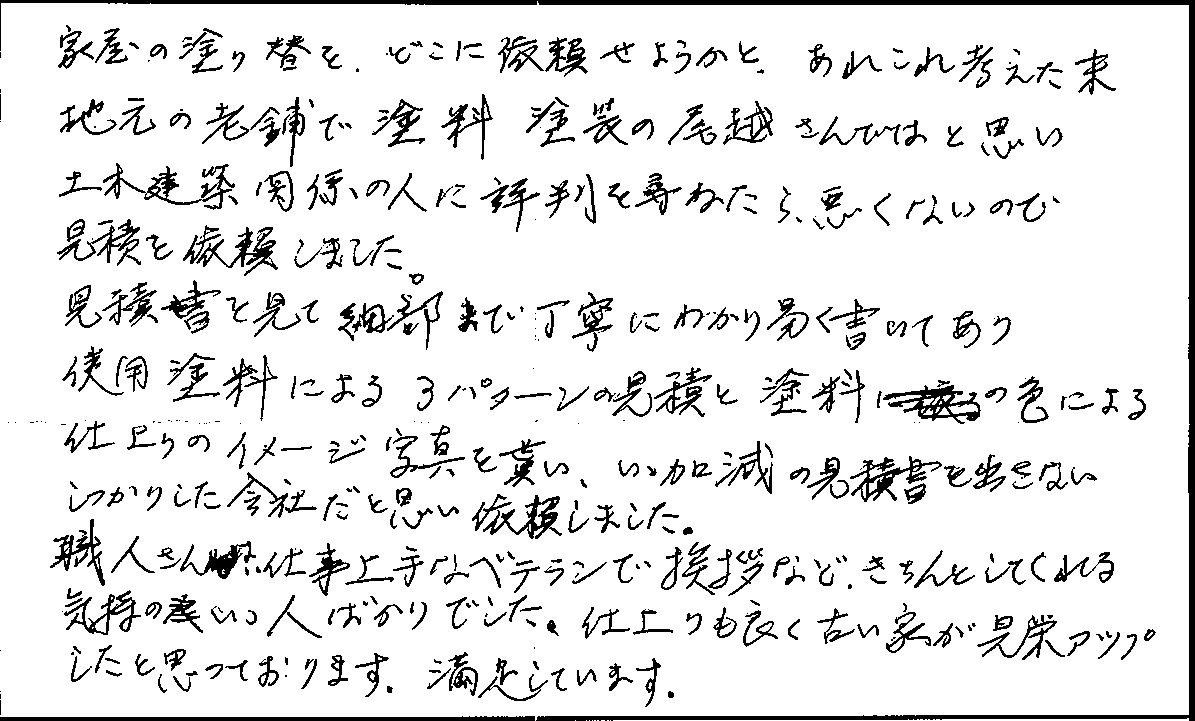 家屋の塗り替を、どこに依頼せようかと、あれこれ考えた末
地元の老舗で塗料 塗装の尾越さんではと思い
土木建築関係の人に評判を尋ねたら、悪くないので
見積を依頼しました。
見積書を見て細部まで丁寧にわかり易く書いてあり
使用塗料による3パターンの見積と塗料の色による
仕上りのイメージ写真を貰い、いい加減の見積書を出さない
しっかりした会社だと思い依頼しました。
職人さんは仕事上手なベテランで挨拶など、きちんとしてくれる
気持の良いい人ばかりでした。仕上りも良く古い家が見栄アップ
したと思っております。満足しています。